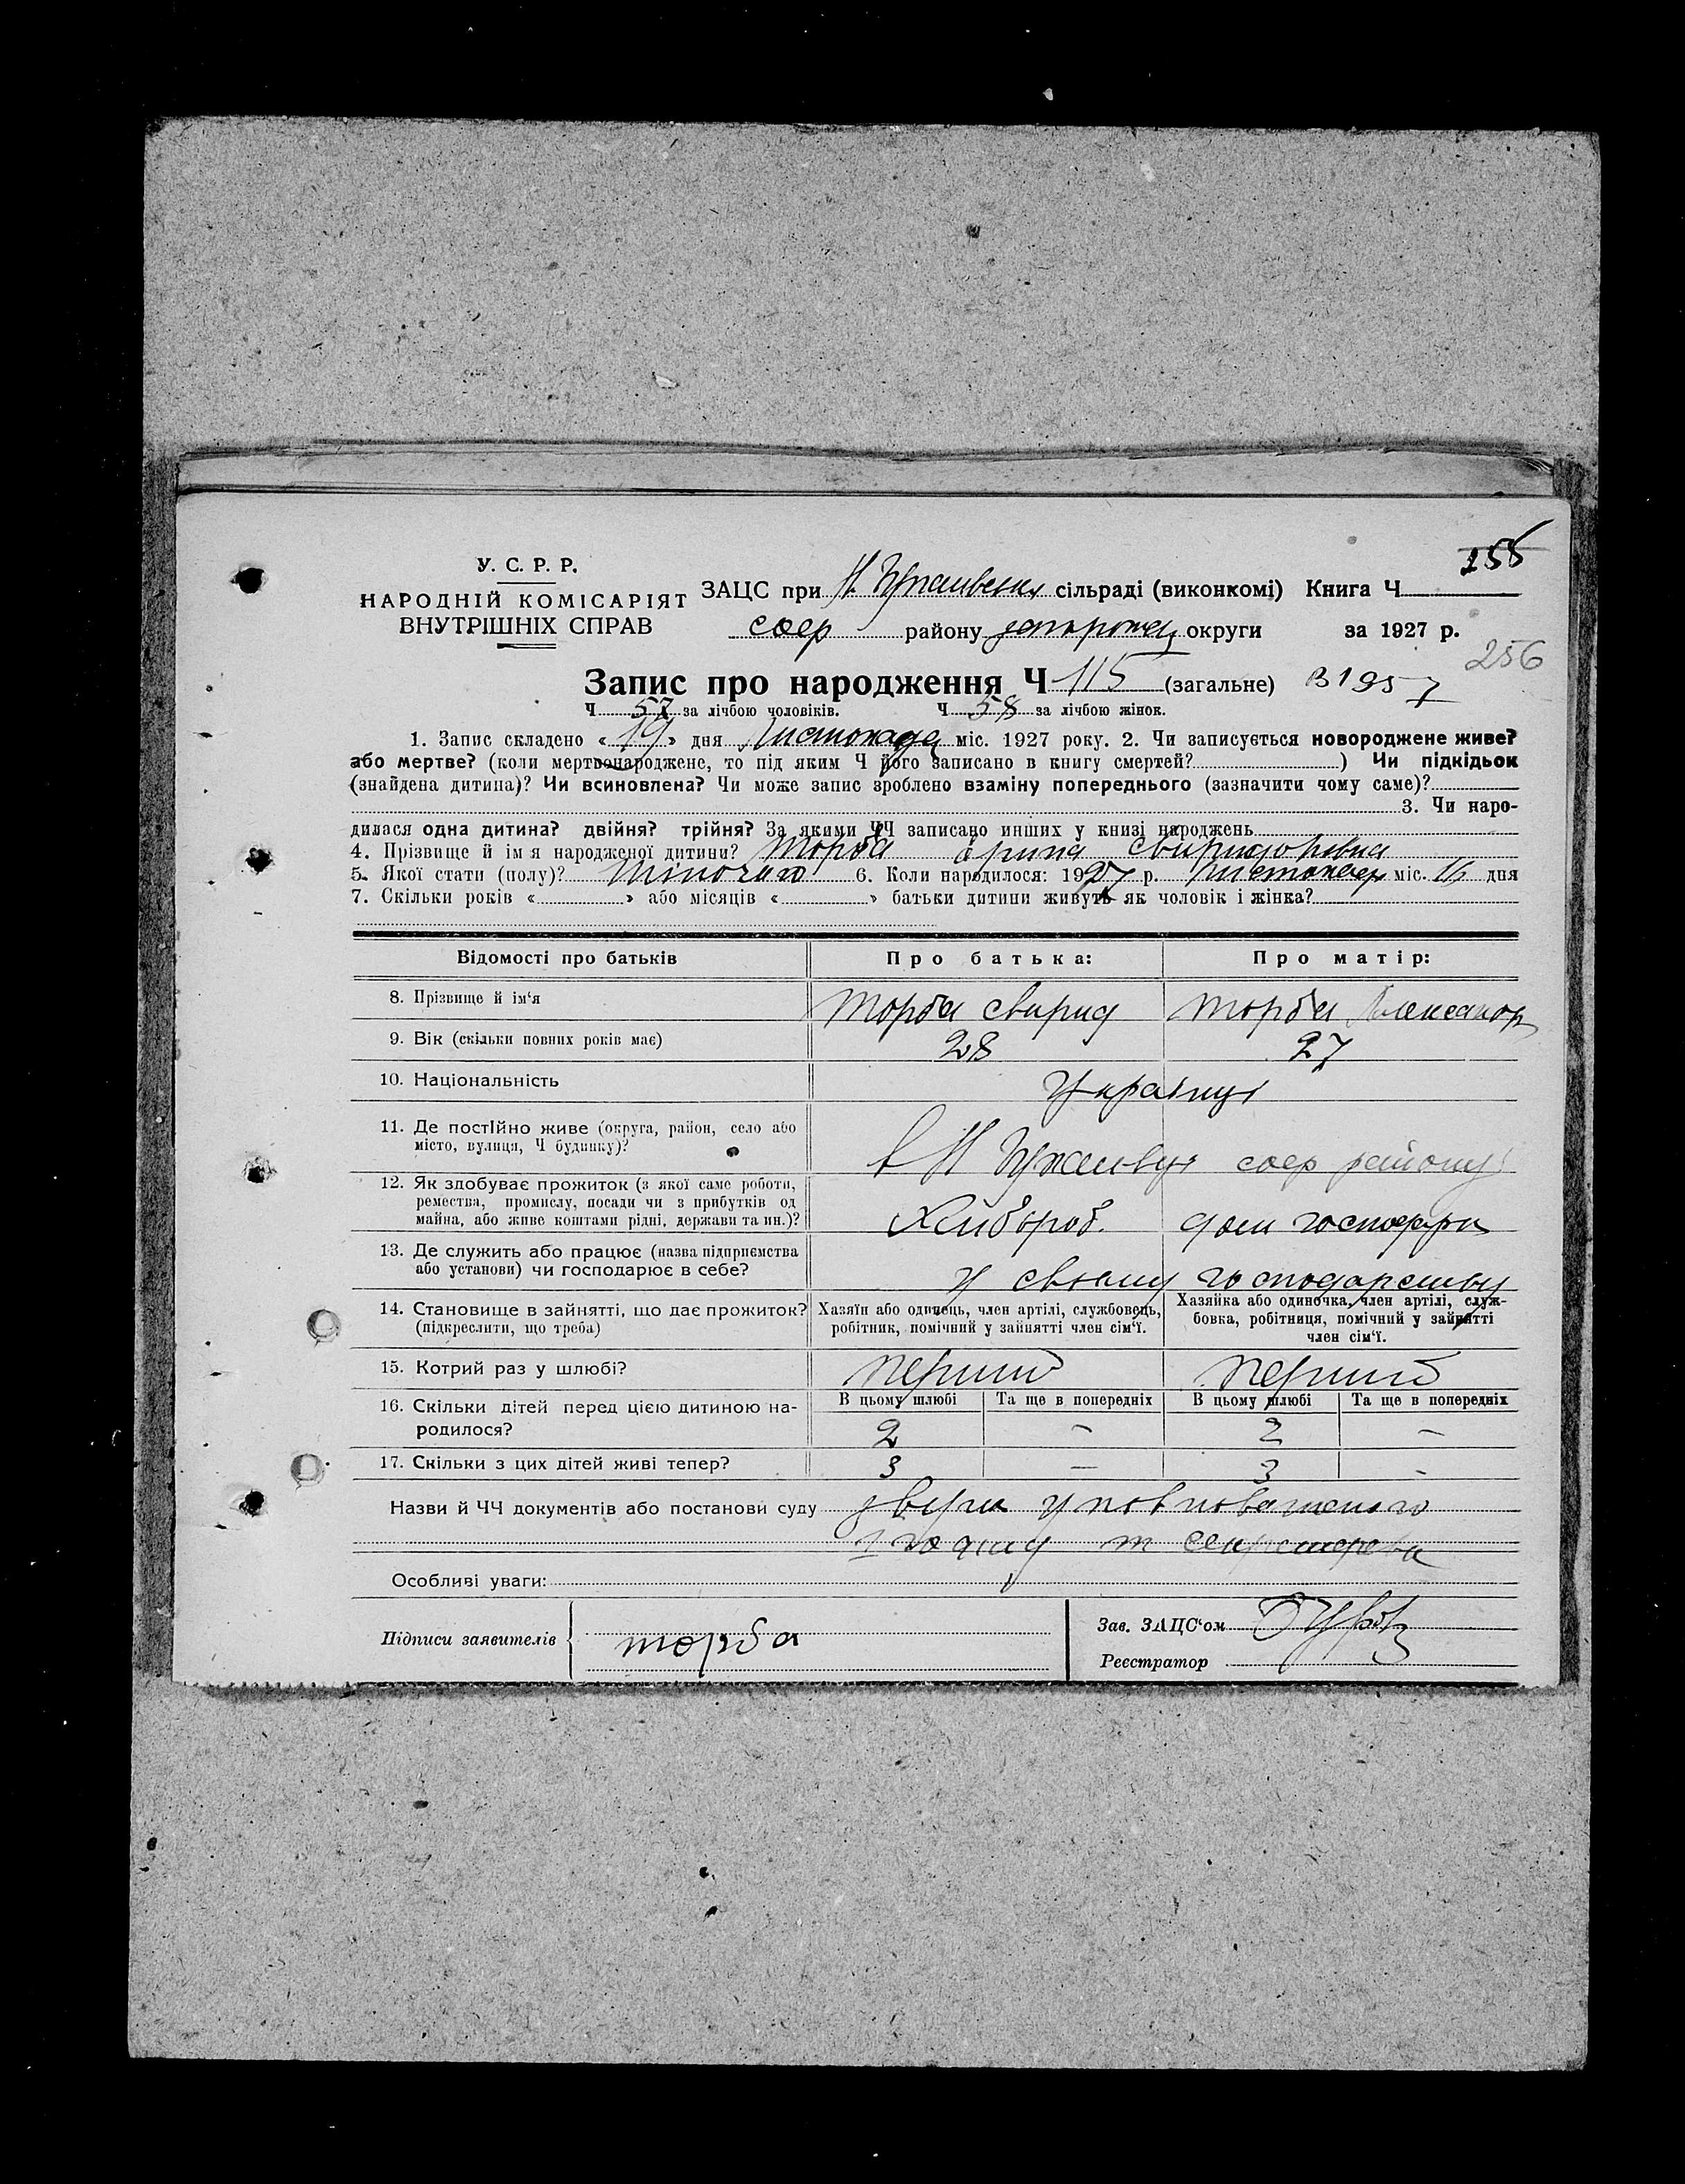 155
У. С. Р. Р.
НАРОДНІЙ КОМІСАРІЯТ
ВНУТРІШНІХ СПРАВ
ЗАЦС при Н сільраді (виконкомі) Книга Ч
району округи за 1927 р.
256
Запис про народження Ч 115 (загальне) В1957
Ч 57 за лічбою чоловіків. Ч 58 за лічбою жінок.
1. Запис складено « 19 » дня Листопада міс. 1927 року. 2. Чи записується новороджене живе?
або мертве? (коли мертвонароджене, то під яким Ч його записано в книгу смертей? ) Чи підкідьок
(знайдена дитина)? Чи всиновлена? Чи може запис зроблено взаміну попереднього (зазначити чому саме)?
3. Чи наро-
дилася одна дитина? двійня? трійня? За якими ЧЧ записано инших у книзі народжень
4. Прізвище й ім я народженої дитини? Торба Орина Свиридовна
5. Якої стати (полу)? Жіночого 6. Коли народилося: 1927 р. Листопад міс. 16 дня
7. Скільки років « » або місяців « » батьки дитини живуть як чоловік і жінка?
Відомості про батьків Про батька: Про матір:
8. Прізвище й ім'я Торба Свирид Торба Александр
9. Вік (скільки повних років має) 28 27
10. Національність Українці
11. Де постійно живе (округа, район, село або
місто, вулиця, Ч будинку)? в Н району
12. Як здобуває прожиток (з якої саме роботи,
ремества, промислу, посади чи з прибутків од
майна, або живе коштами рідні, держави та ин.)? Хлібороб. дом господарка
13. Де служить або працює (назва підприємства
або установи) чи господарює в себе? У свому господарстві
14. Становище в зайнятті, що дає прожиток?
(підкреслити, що треба)
Хазяїн або одинець, член артілі, службовець,
робітник, помічний у зайнятті член сім'ї.
Хазяйка або одиночка, член артілі, служ-
бовка, робітниця, помічний у зайнятті
член сім'ї.
15. Котрий раз у шлюбі? перший перший
16. Скільки дітей перед цією дитиною на-
родилося?
В цьому шлюбі Та ще в попередніх В цьому шлюбі Та ще в попередніх
2 - 2 -
17. Скільки з цих дітей живі тепер? 3 - 3 -
Назви й ЧЧ документів або постанови суду уповноваженого
Особливі уваги:
Підписи заявителів торба
Зав. ЗАЦС'ом
Реєстратор